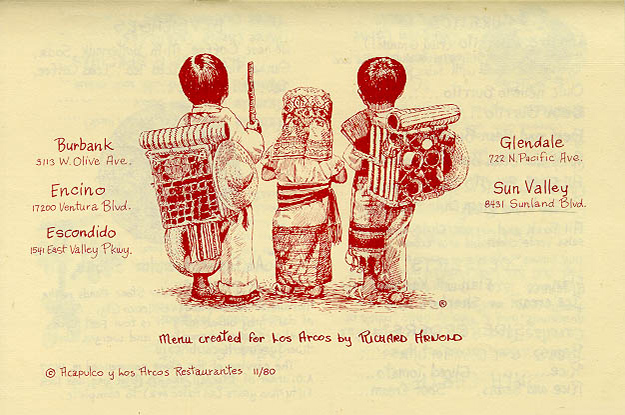 Burbank
3113 W. Olive Ave.
Encino
17200 Ventura Blvd.
Escondido
1541 East Valley Pkwy.
Glendale
722 N. Pacific Ave.
Sun Valley
8431 Sunland Blvd.
®
Menu created for Los Arcos by RICHARD ARNOLD
© Acapulco y Los Arcos Restaurantes 11/80